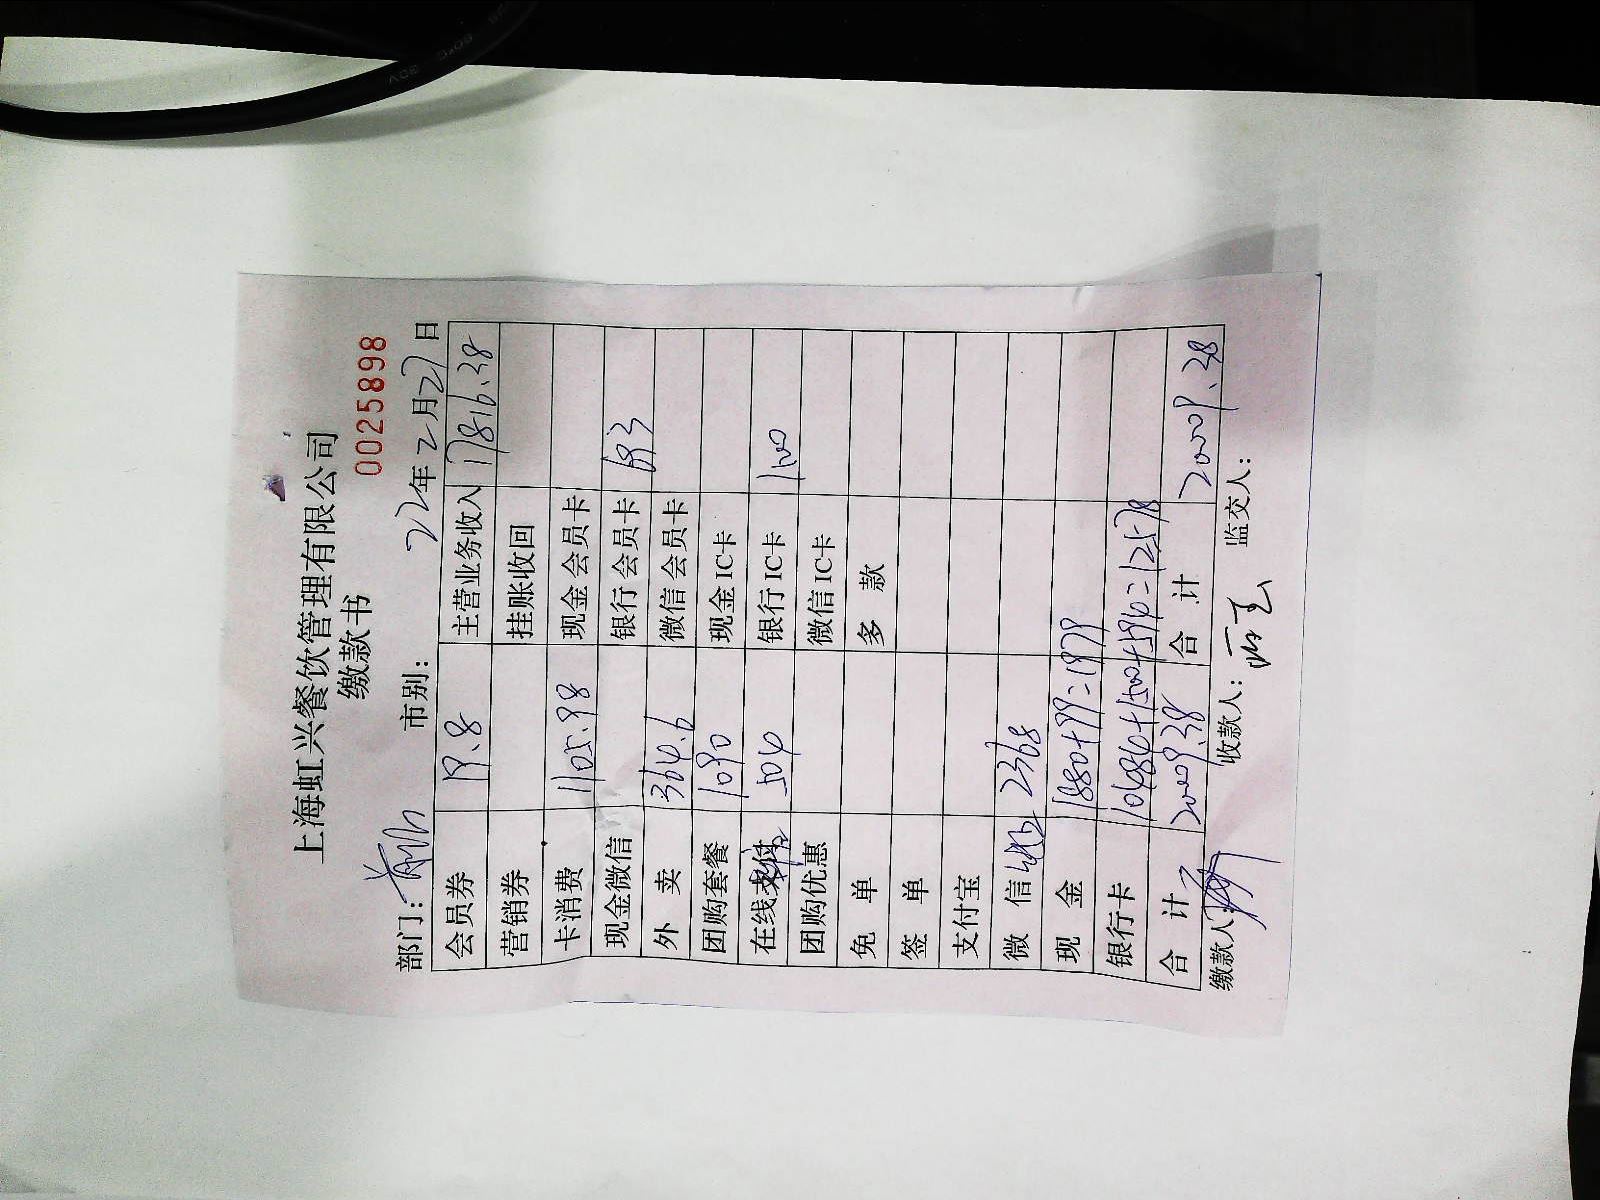 上海虹兴餐饮管理有限公司
缴款书
0025898
部门: 市别: 22年2月27日
会员券 19.8 主营业务收入 17816.38
营销券 挂账收回
卡消费 1105.98 现金会员卡
现金微信 银行会员卡 693
外 卖 364.6 微信会员卡
团购套餐 1090 现金IC卡
在线支付 504 银行IC卡 1500
团购优惠 微信IC卡
免 单 多 款
签 单
支付宝
微 信 2368
现 金 1880+99=1979
银行卡 10484+1500+594=12578
合 计 20009.38 合 计 20009.38
缴款人: 收款人: 监交人: